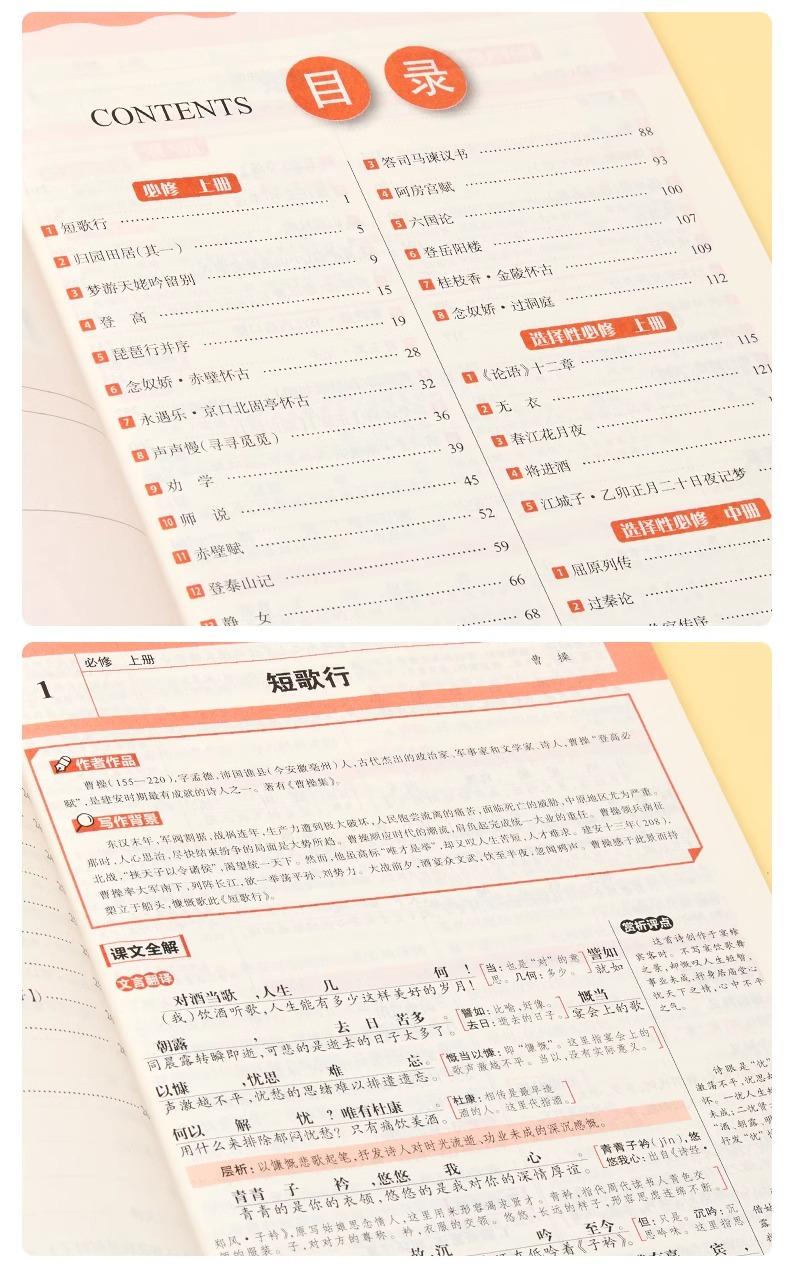 CONTENTS 目录
必修 上册
1 短歌行 1
2 归园田居(其一) 5
3 梦游天姥吟留别 9
4 登 高 15
5 琵琶行并序 19
6 念奴娇·赤壁怀古 28
7 永遇乐·京口北固亭怀古 32
8 声声慢(寻寻觅觅) 36
9 劝 学 39
10 师 说 45
11 赤壁赋 52
12 登泰山记 59
静 女 66
68
3 答司马谏议书 88
4 阿房宫赋 93
5 六国论 100
6 登岳阳楼 107
7 桂枝香·金陵怀古 109
8 念奴娇·过洞庭 112
选择性必修 上册
1 《论语》十二章 115
2 无 衣 121
3 春江花月夜
4 将进酒
5 江城子·乙卯正月二十日夜记梦
选择性必修 中册
1 屈原列传
2 过秦论
1
必修 上册
短歌行
曹 操
作者作品
曹操(155—220),字孟德,沛国谯县(今安徽亳州)人,古代杰出的政治家、军事家和文学家、诗人,曹操“登高必
赋”,是建安时期最有成就的诗人之一。著有《曹操集》。
写作背景
东汉末年,军阀割据,战祸连年,生产力遭到极大破坏,人民饱尝流离的痛苦,面临死亡的威胁,中原地区尤为严重。
那时,人心思治,尽快结束纷争的局面是大势所趋。曹操顺应时代的潮流,肩负起完成统一大业的重任。曹操领兵南征
北战,“挟天子以令诸侯”,渴望统一天下。然而,他虽高标“唯才是举”,却又叹人生苦短,人才难求。建安十三年(208),
曹操率大军南下,列阵长江,欲一举荡平孙、刘势力。大战前夕,酒宴众文武,饮至半夜,忽闻鸦声。曹操感于此景而持
槊立于船头,慷慨歌此《短歌行》。
课文全解
文言翻译
对酒当歌,人生几何!譬如
(我)饮酒听歌,人生能有多少这样美好的岁月!就如
当:也是“对”的意
思。几何:多少。
朝露,去日苦多。慨当
同晨露转瞬即逝,可悲的是逝去的日子太多了。宴会上的歌
譬如:比喻,好像。
去日:逝去的日子。
以慷,忧思难忘。
声激越不平,忧愁的思绪难以排遣遗忘。
慨当以慷:即“慷慨”。这里指宴会上的
歌声激越不平。当以,没有实际意义。
何以解忧?唯有杜康。
用什么来排除郁闷忧愁?只有痛饮美酒。
杜康:相传是最早造
酒的人。这里代指酒。
层析:以慷慨悲歌起笔,抒发诗人对时光流逝、功业未成的深沉感慨。
青青子衿,悠悠我心。
青青的是你的衣领,悠悠的是我对你的深情厚谊。
青青子衿(jīn),悠
悠我心:出自《诗经·
郑风·子衿》,原写姑娘思念情人,这里用来形容渴求贤才。青衿,指代周代读书人青色交
领的服装。子,对对方的尊称。衿,衣服的交领。悠悠,长远的样子,形容思虑连绵不断。
故,沉吟至今。
低吟着《子衿》。
但:只是。沉吟:沉
思吟味。这里指思
赏析评点
这首诗创作于宴飨
宾客时。不写宴饮歌舞
之景,却慨叹人生短暂,
事业未成,抒身居庙堂心
忧天下之情,心中不平
之气。
诗眼是“忧”